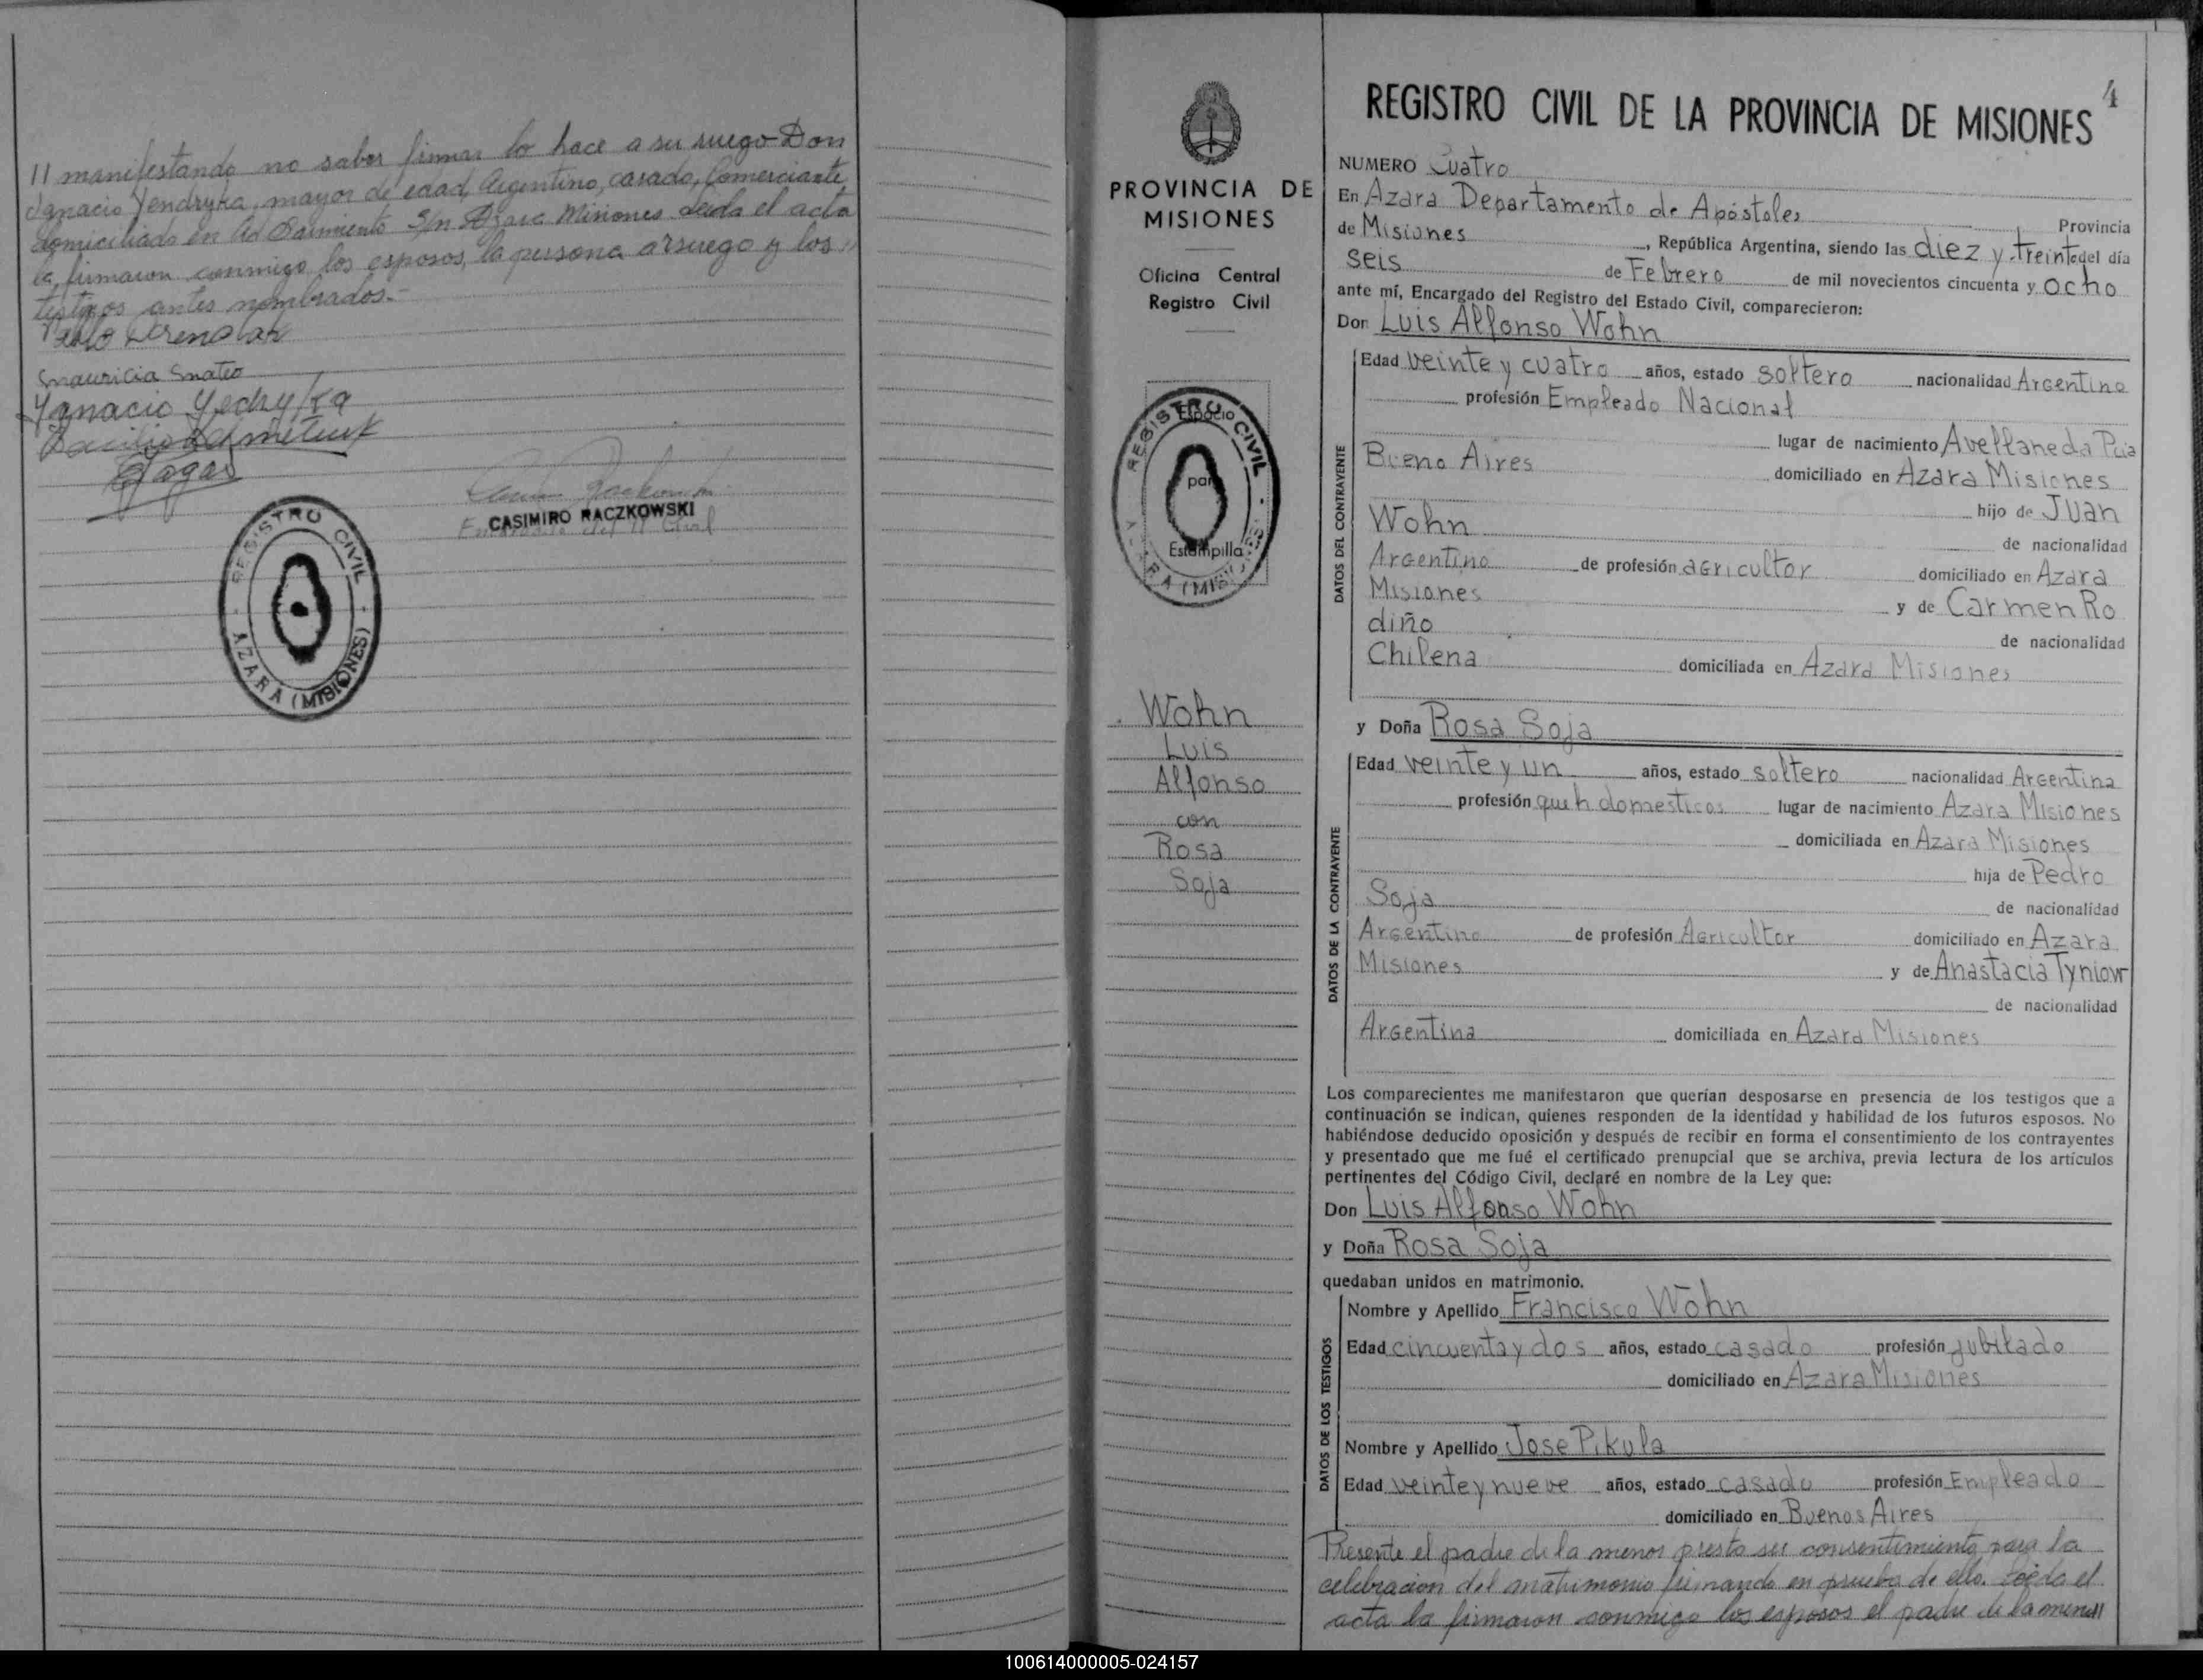 11 manifestando no saber firmar lo hace a su ruego Don
Ignacio Yendryka, mayor de edad, Argentino, casado, Comerciante,
domiciliado en Av Sarmiento S/n Azara Misiones. Leida el acta
la firmaron conmigo los esposos, la persona a ruego y los
testigos antes nombrados.-
Mauricia Mateo
Ygnacio
CASIMIRO RACZKOWSKI
REGISTRO CIVIL
AZARA (MISIONES)
PROVINCIA DE
MISIONES
Oficina Central
Registro Civil
Espacio
para
Estampilla
REGISTRO CIVIL
Wohn
Luis
Alfonso
con
Rosa
Soja
4
REGISTRO CIVIL DE LA PROVINCIA DE MISIONES
NUMERO Cuatro
En Azara Departamento de Apóstoles Provincia
de Misiones, República Argentina, siendo las diez y treinta del día
seis de Febrero de mil novecientos cincuenta y ocho
ante mí, Encargado del Registro del Estado Civil, comparecieron:
Don Luis Alfonso Wohn
DATOS DEL CONTRAYENTE
Edad veinte y cuatro años, estado soltero nacionalidad Argentina
profesión Empleado Nacional
lugar de nacimiento Avellaneda Pcia
Bueno Aires domiciliado en Azara Misiones
hijo de Juan
Wohn de nacionalidad
Argentino de profesión agricultor domiciliado en Azara
Misiones y de Carmen Ro
diño de nacionalidad
Chilena domiciliada en Azara Misiones
y Doña Rosa Soja
DATOS DE LA CONTRAYENTE
Edad veinte y un años, estado soltero nacionalidad Argentina
profesión queh domesticos lugar de nacimiento Azara Misiones
domiciliada en Azara Misiones
hija de Pedro
Soja de nacionalidad
Argentino de profesión Agricultor domiciliado en Azara
Misiones y de Anastacia Tyniow
de nacionalidad
Argentina domiciliada en Azara Misiones
Los comparecientes me manifestaron que querían desposarse en presencia de los testigos que a
continuación se indican, quienes responden de la identidad y habilidad de los futuros esposos. No
habiéndose deducido oposición y después de recibir en forma el consentimiento de los contrayentes
y presentado que me fué el certificado prenupcial que se archiva, previa lectura de los artículos
pertinentes del Código Civil, declaré en nombre de la Ley que:
Don Luis Alfonso Wohn
y Doña Rosa Soja
quedaban unidos en matrimonio.
DATOS DE LOS TESTIGOS
Nombre y Apellido Francisco Wohn
Edad cincuenta y dos años, estado casado profesión jubilado
domiciliado en Azara Misiones
Nombre y Apellido Jose Pikula
Edad veinte y nueve años, estado casado profesión Empleado
domiciliado en Buenos Aires
Presente el padre de la menor presta su consentimiento para la
celebracion del matrimonio firmando en prueba de ello. Leida el
acta la firmaron conmigo los esposos el padre de la menor 11
100614000005-024157